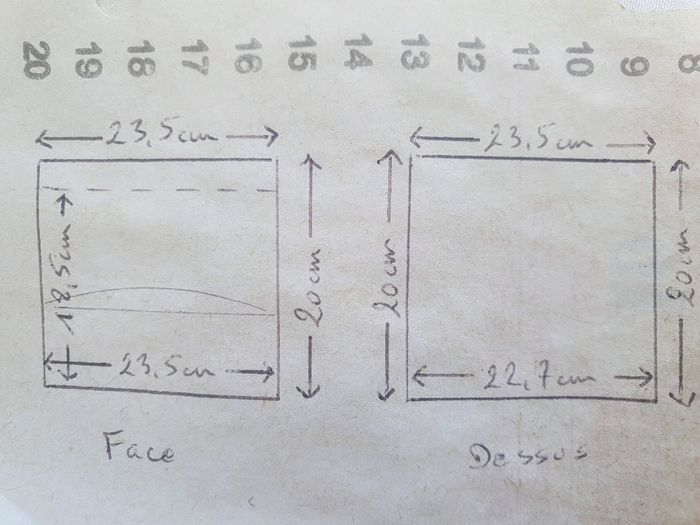 20 19 18 17 16 15 14 13 12 11 10 9 8
23,5cm 23,5cm
18,5cm 20cm 20cm 20cm
23,5cm 22,7cm
Face Dessus